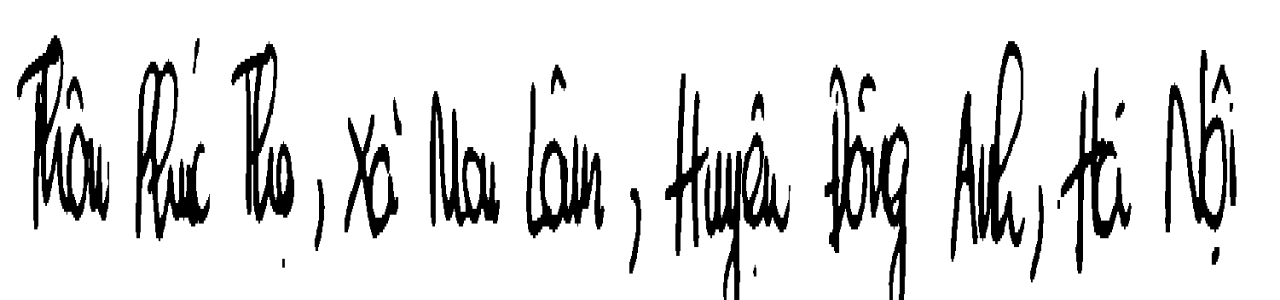 Thôn Phúc Thọ, Xã Mai Lâm, Huyện Đông Anh, Hà Nội